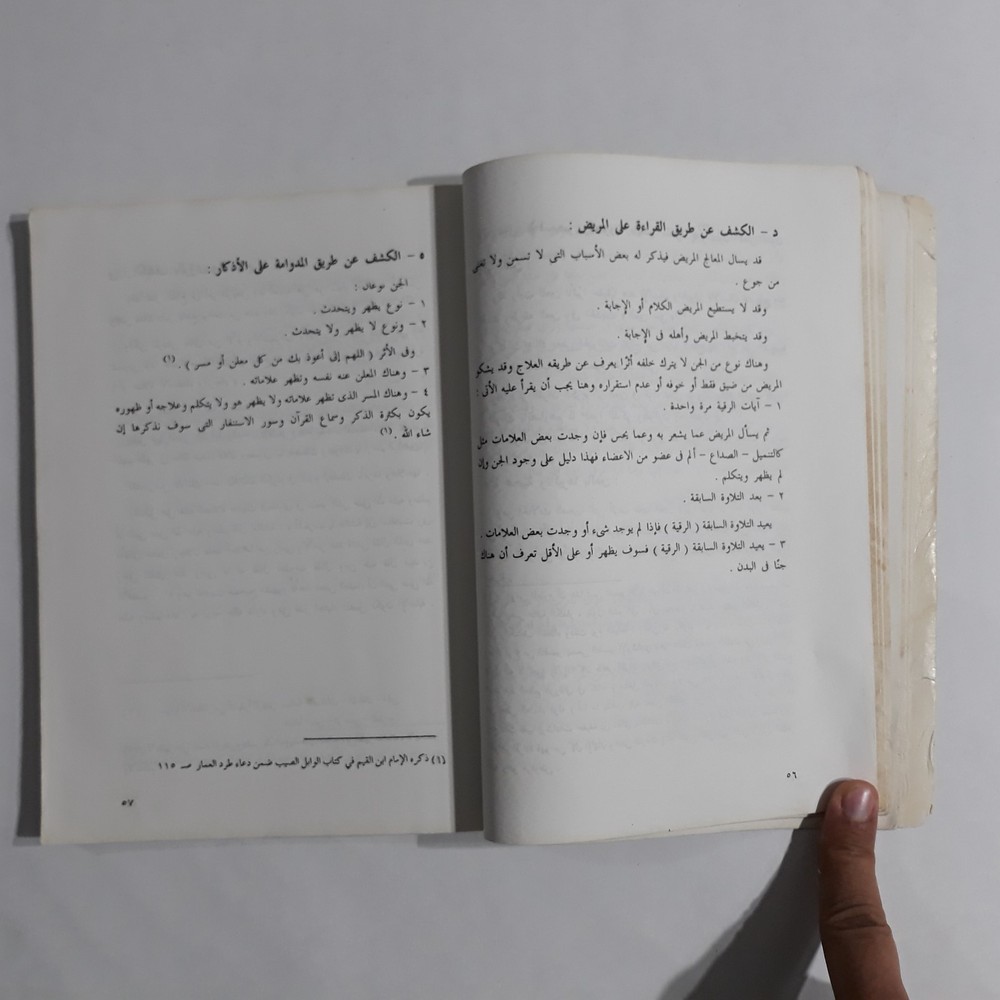 د – الكشف عن طريق القراءة على المريض :
قد يسال المعالج المريض فيذكر له بعض الأسباب التى لا تسمن ولا تغنى
من جوع .
وقد لا يستطيع المريض الكلام أو الإجابة .
وقد يتخبط المريض وأهله فى الإجابة .
وهناك نوع من الجن لا يترك خلفه أثرًا يعرف عن طريقه العلاج وقد يشكو
المريض من ضيق فقط أو خوفه أو عدم استقراره وهنا يجب أن يقرأ عليه الأتى :
١ – آيات الرقية مرة واحدة .
ثم يسأل المريض عما يشعر به وعما يحس فإن وجدت بعض العلامات مثل
كالتنميل – الصداع – ألم فى عضو من الاعضاء فهذا دليل على وجود الجن وإن
لم يظهر ويتكلم .
٢ – بعد التلاوة السابقة .
يعيد التلاوة السابقة ( الرقية ) فإذا لم يوجد شىء أو وجدت بعض العلامات .
٣ – يعيد التلاوة السابقة ( الرقية ) فسوف يظهر أو على الأقل تعرف أن هناك
جنًا فى البدن .
٥٦
٥ – الكشف عن طريق المداومة على الأذكار :
الجن نوعان :
١ – نوع يظهر ويتحدث .
٢ – ونوع لا يظهر ولا يتحدث .
وفى الأثر ( اللهم إلى أعوذ بك من كل معلن أو مسر ) . (١)
٣ – وهناك المعلن عنه نفسه وتظهر علاماته .
٤ – وهناك المسر الذى تظهر علاماته ولا يظهر هو ولا يتكلم وعلاجه أو ظهوره
يكون بكثرة الذكر وسماع القرآن وسور الاستغفار التى سوف نذكرها إن
شاء الله . (١)
(١) ذكره الإمام ابن القيم في كتاب الوابل الصيب ضمن دعاء طرد العمار صـ ١١٥
٥٧